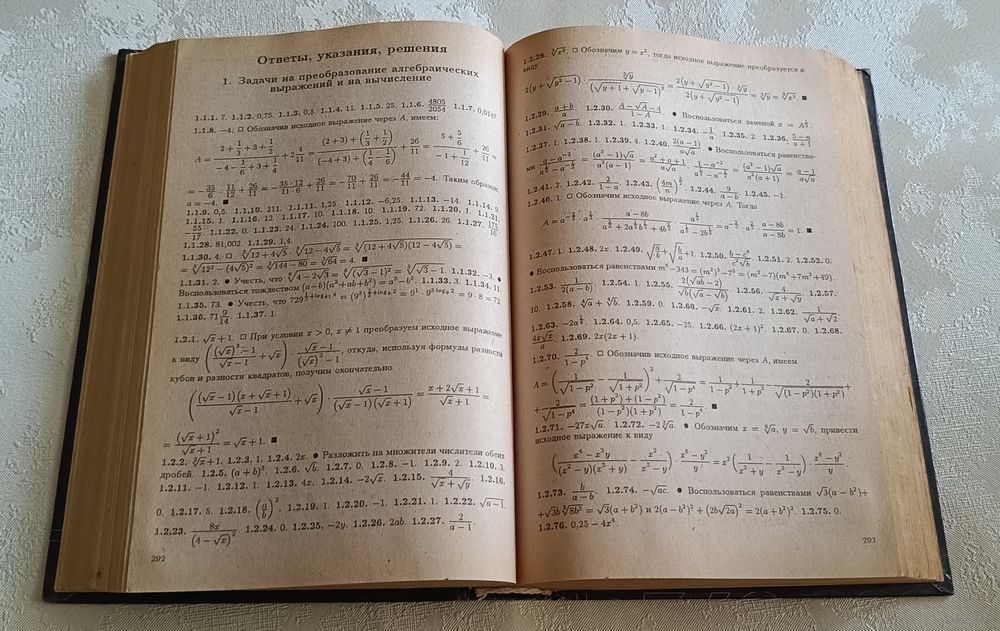 Ответы, указания, решения
1. Задачи на преобразование алгебраических
выражений и на вычисление
1.1.1. 7. 1.1.2. 0,75. 1.1.3. 0,5. 1.1.4. 11. 1.1.5. 25. 1.1.6. 4805/2054. 1.1.7. 0,0147.
1.1.8. −4. □ Обозначим исходное выражение через A, имеем:
A = (2 + 1/3 + 3 + 1/2)/(−4 − 1/6 + 3 + 1/4) + 2 4/11 = ((2 + 3) + (1/3 + 1/2))/((−4 + 3) + (1/4 − 1/6)) + 26/11 = (5 + 5/6)/(−1 + 1/12) + 26/11 =
= −35/6 · 12/11 + 26/11 = −(35 · 12)/(11 · 6) + 26/11 = −70/11 + 26/11 = −44/11 = −4. Таким образом,
a = −4. ■
1.1.9. 0,5. 1.1.10. 211. 1.1.11. 1,25. 1.1.12. −6,25. 1.1.13. −14. 1.1.14. 9.
1.1.15. 1. 1.1.16. 12. 1.1.17. 10. 1.1.18. 10. 1.1.19. 72. 1.1.20. 1. 1.1.21.
−55/17. 1.1.22. 0. 1.1.23. 24. 1.1.24. 100. 1.1.25. 1,25. 1.1.26. 26. 1.1.27. 175/16.
1.1.28. 81,002. 1.1.29. 1,4.
1.1.30. 4. □ ∛(12 + 4√5) · ∛(12 − 4√5) = ∛((12 + 4√5)(12 − 4√5)) =
= ∛(12² − (4√5)²) = ∛(144 − 80) = ∛64 = 4. ■
1.1.31. 2. ● Учесть, что
Воспользоваться тождеством (a − b)(a² + ab + b²) = a³ − b³. 1.1.33. 3. 1.1.34. 11.
1.1.35. 73. ● Учесть, что
1.1.36. 71 9/14. 1.1.37. 1.
1.2.1. √x + 1. □ При условии x > 0, x ≠ 1 преобразуем исходное выражение
к виду (((√x)³ − 1)/(√x − 1) + √x) · (√x − 1)/((√x)² − 1), откуда, используя формулы разности
кубов и разности квадратов, получим окончательно
(((√x − 1)(x + √x + 1))/(√x − 1) + √x) · (√x − 1)/((√x − 1)(√x + 1)) = (x + 2√x + 1)/(√x + 1) =
= (√x + 1)²/(√x + 1) = √x + 1. ■
1.2.3. 1. 1.2.4. 2x. ● Разложить на множители числители обеих
дробей. 1.2.5. (a + b)². 1.2.6. √b. 1.2.7. 0. 1.2.8. −1. 1.2.9. 2. 1.2.10. 3.
1.2.11. −1. 1.2.12. 1. 1.2.13. 4x. 1.2.14. −2√x. 1.2.15. 4/(√x + √y). 1.2.16.
0. 1.2.17. 5. 1.2.18. (a/b)². 1.2.19. 1. 1.2.20. −1. 1.2.21. 1. 1.2.22. √(a − 1).
1.2.23. 8x/(4 − √x)². 1.2.24. 0. 1.2.25. −2y. 1.2.26. 2ab. 1.2.27. 2/(a − 1).
292
1.2.28. □ Обозначим y = x², тогда исходное выражение преобразуется к
виду
2(y + √(y² − 1)) · ∛y/(√(y + 1) + √(y − 1))² = (2(y + √(y² − 1)) · ∛y)/(2(y + √(y² − 1))) = ∛y = ∛x². ■
1.2.29. (a + b)/a. 1.2.30. ● Воспользоваться заменой
1.2.31. √(a − b). 1.2.32. 1. 1.2.33. 1. 1.2.34. −1/a. 1.2.35. 2. 1.2.36. (5 − a)/(a + 1).
1.2.37. 1. 1.2.38. 1. 1.2.39. 4. 1.2.40. 2(a − 1)/(a√a). ● Воспользоваться равенства-
ми
1.2.41. 2. 1.2.42. 2/(1 − a). 1.2.43. 1.2.44. 9/(a − b). 1.2.45. −1.
1.2.46. 1. □ Обозначим исходное выражение через A. Тогда
1.2.47. 1. 1.2.48. 2x. 1.2.49. √(a/b) + √(b/a) + 1. 1.2.50. 1.2.51. 2. 1.2.52. 0.
● Воспользоваться равенствами m⁶ − 343 = (m²)³ − 7³ = (m² − 7)(m⁴ + 7m² + 49).
1.2.53. 1/(2(a − b)). 1.2.54. 1. 1.2.55. 2(√(ab) − 2)/(√b(√a − √b)). 1.2.56. 4/(√x + √y). 1.2.57.
10. 1.2.58. 1.2.59. 0. 1.2.60. −√x. 1.2.61. 2. 1.2.62. 1/(√a + √2).
1.2.63. 1.2.64. 0,5. 1.2.65. −25. 1.2.66. (2x + 1)². 1.2.67. 0. 1.2.68.
4x√x/a. 1.2.69. 2x(2x + 1).
1.2.70. 2/(1 − p⁴). □ Обозначим исходное выражение через A, имеем
A = (1/√(1 − p²) − 1/√(1 + p²))² + 2/√(1 − p⁴) = 1/(1 − p²) + 1/(1 + p²) − 2/√((1 − p²)(1 + p²)) +
+ 2/√(1 − p⁴) = ((1 + p²) + (1 − p²))/((1 − p²)(1 + p²)) = 2/(1 − p⁴). ■
1.2.71. −27x√a. 1.2.72. ● Обозначим y = √b, привести
исходное выражение к виду
((x⁶ − x⁴)/((x² − y)(x³ + y)) − x²/(x³ − y)) · (x⁶ − y²)/y = x²(1/(x³ + y) − 1/(x³ − y)) · (x⁶ − y²)/y.
1.2.73. b/(a − b). 1.2.74. −√(ac). ● Воспользоваться равенствами √3(a − b²) +
+ √3b ∛(8b³) = √3(a + b²) и 2(a − b²)² + (2b√(2a))² = 2(a + b²)². 1.2.75. 0.
1.2.76. 0,25 − 4x⁴.
293